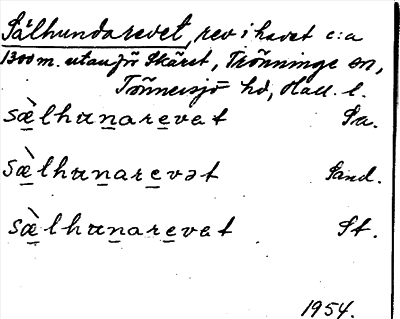 Sälhundarevet, rev i havet c:a
1300 m. utanför Skäret, Trönninge sn,
Tönnersjö hd, Hall. l.
sæ̀lhunarevet Sa.
sæ̀lhunarevət Sand.
sæ̀lhunarevet St.
1954.